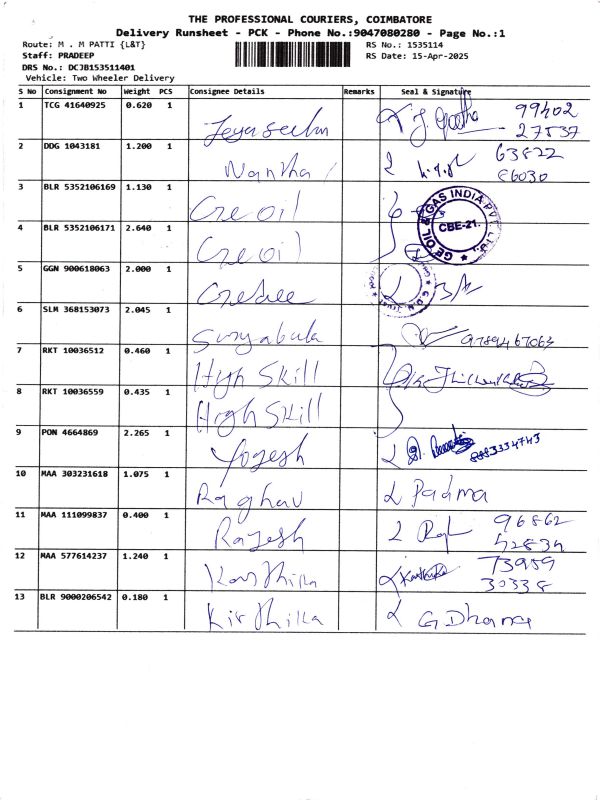 THE PROFESSIONAL COURIERS, COIMBATORE
Delivery Runsheet - PCK - Phone No.:9047080280 - Page No.:1
Route: M . M PATTI {L&T} RS No.: 1535114
Staff: PRADEEP RS Date: 15-Apr-2025
DRS No.: DCJB153511401
Vehicle: Two Wheeler Delivery
S No Consignment No Weight PCS Consignee Details Remarks Seal & Signature
1 TCG 41640925 0.620 1 99402
27837
2 DDG 1043181 1.200 1 Nantha 63822
86030
3 BLR 5352106169 1.130 1 Gre oil
4 BLR 5352106171 2.640 1 Gre oil GE OIL & GAS INDIA PVT. LTD. CBE-21.
5 GGN 900618063 2.000 1
6 SLM 368153073 2.045 1 Suryabala 9789467063
7 RKT 10036512 0.460 1 High Skill
8 RKT 10036559 0.435 1 High Skill
9 PON 4664869 2.265 1 Yogesh 8883334743
10 MAA 303231618 1.075 1 Raghav Padma
11 MAA 111099837 0.400 1 Rajesh 96862
52834
12 MAA 577614237 1.240 1 Karthika Karthika 73959
30338
13 BLR 9000206542 0.180 1 Kirthika G Dhana